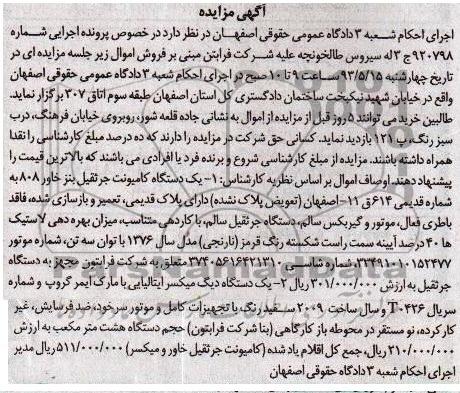 آگهی مزایده
اجرای احکام شعبه ۳ دادگاه عمومی حقوقی اصفهان در نظر دارد در خصوص پرونده اجرایی شماره
۹۲۰۷۹۸ ج ۳ له سیروس طالخونچه علیه شرکت فرابتن مبنی بر فروش اموال زیر جلسه مزایده ای در
تاریخ چهارشنبه ۹۳/۵/۱۵ ساعت ۹ تا ۱۰ صبح در اجرای احکام شعبه ۳ دادگاه عمومی حقوقی اصفهان
واقع در خیابان شهید نیکبخت ساختمان دادگستری کل استان اصفهان طبقه سوم اتاق ۳۰۷ برگزار نماید.
طالبین خرید می توانند ۵ روز قبل از مزایده از اموال به نشانی جاده قلعه شور، روبروی خیابان فرهنگ، درب
سبز رنگ، پ ۱۲۱ بازدید نماید. کسانی حق شرکت در مزایده را دارند که ده درصد مبلغ کارشناسی را نقدا
همراه داشته باشند. مزایده از مبلغ کارشناسی شروع و برنده فرد یا افرادی می باشند که بالاترین قیمت را
پیشنهاد دهند. اوصاف اموال بر اساس نظریه کارشناس: ۱- یک دستگاه کامیونت جرثقیل بنز خاور ۸۰۸ به
شماره قدیمی ۶۱۴ ق ۱۱- اصفهان (تعویض پلاک نشده) دارای پلاک قدیمی، تعمیر و بازسازی شده، فاقد
باطری فعال، موتور و گیربکس سالم، دستگاه جرثقیل سالم، با کاردهی متناسب، میزان بهره دهی لاستیک
ها ۴۰ درصد آیینه سمت راست شکسته رنگ قرمز (نارنجی) مدل سال ۱۳۷۶ با توان سه تن، شماره موتور
۳۳۴۹۱۰۱۰۱۵۲۴۷۷، شماره شاسی ۳۷۴۰۵۶۱۶۴۲۱۳۱۰ متعلق به شرکت فرابتون مجهز به دستگاه
جرثقیل به ارزش ۳۰۱/۰۰۰/۰۰۰ ریال ۲- یک دستگاه دیگ میکسر ایتالیایی با مارک آیمر گروپ و شماره
سریال T۰۴۲۶ و سال ساخت ۲۰۰۹ سفیدرنگ با تجهیزات کامل و موتور سرخود، ضد فرسایش، غیر
کار کرده، نو مستقر در محوطه باز کارگاهی (بنا شرکت فرابتون) حجم دستگاه هشت متر مکعب به ارزش
۲۱۰/۰۰۰/۰۰۰ ریال، جمع کل اقلام یاد شده (کامیونت جرثقیل خاور و میکسر) ۵۱۱/۰۰۰/۰۰۰ ریال مدیر
اجرای احکام شعبه ۳ دادگاه حقوقی اصفهان
ParsNamadData